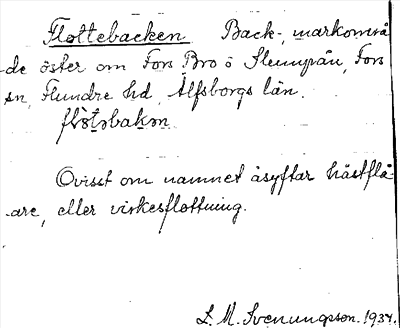 Flottebacken Back-, markområ-
de öster om Fors Bro i Slumpån, Fors
sn, Flundre hd, Älfsborgs län.
Ovisst om namnet åsyftar hästflå-
are, eller virkesflottning.
L. M. Svenungsson. 1934.